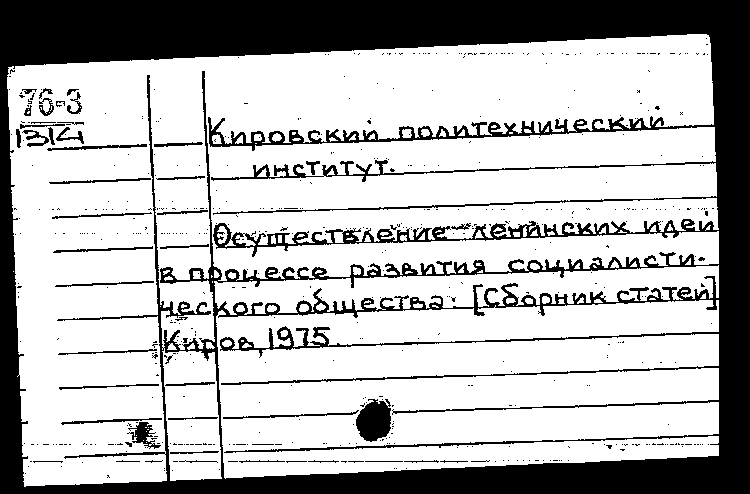 76-3
1314
Кировский политехнический
институт.
Осуществление ленинских идей
в процессе развития социалисти-
ческого общества: [Сборник статей]
Киров, 1975.